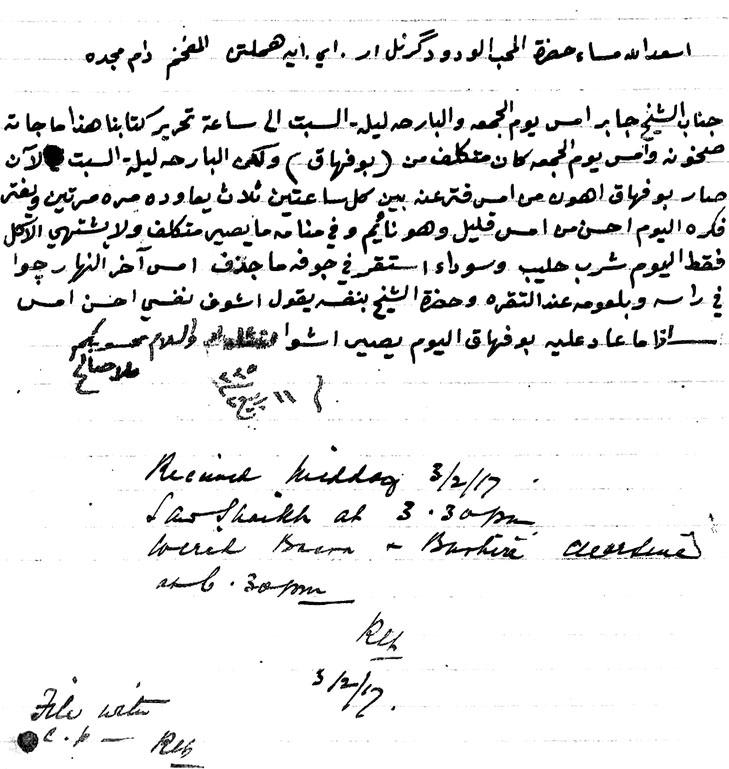 اسعد الله مساء حضرة المحب الودود گرنل ار . اي . ايه هملتن المفخم دام مجده
جناب الشيخ جابر امس يوم الجمعه والبارحه ليلة السبت الى ساعة تحرير كتابنا هذا ما جاته
صخونه وامس يوم الجمعه كان متكلف من (بوفهاق) ولكن البارحه ليلة السبت لآن
صار بوفهاق اهون من امس فترعنه بين كل ساعتين ثلاث يعاوده مره مرتين ويفتر
فكره اليوم احسن من امس قليل وهو نائيم وفي منامه ما يصير متكلف ولا يشتهي الآكل
فقط اليوم شرب حليب وسوداء استقر في جوفه ما جذف امس آخر النهار چوا
في راسه وبلعومه عند النقره وحضرة الشيخ بنفسه يقول اشوف نفسي احسن امس
اذا ما عاد عليه بوفهاق اليوم يصير اشوا والسلام محسوبكم
ملا صالح
١١ ربيع٢ ٣٣٥
Received Midday 3/2/17.
Saw Shaikh at 3.30 pm
Wired Basra & Bushire clear line
at 6.30 pm
REH
3/2/17.
File with
C.P— REH